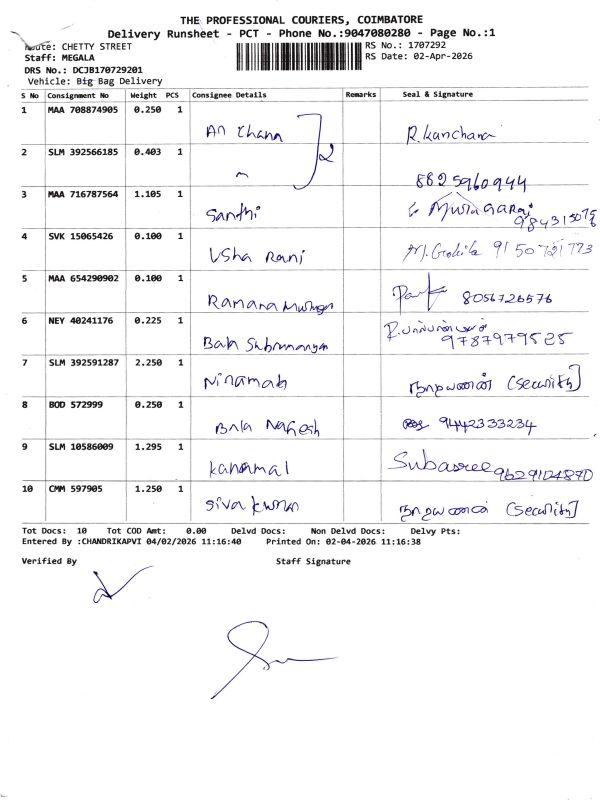 THE PROFESSIONAL COURIERS, COIMBATORE
Delivery Runsheet - PCT - Phone No.:9047080280 - Page No.:1
Route: CHETTY STREET
RS No.: 1707292
Staff: MEGALA
RS Date: 02-Apr-2026
DRS No.: DCJB170729201
Vehicle: Big Bag Delivery
S No Consignment No Weight PCS Consignee Details Remarks Seal & Signature
1 MAA 708874905 0.250 1 R.kanchana
2 SLM 392566185 0.403 1 2 8825960944
3 MAA 716787564 1.105 1 Santhi
4 SVK 15065426 0.100 1 Usha Rani 9150721773
5 MAA 654290902 0.100 1 Ramana 8056726576
6 NEY 40241176 0.225 1 9787979525
7 SLM 392591287 2.250 1 (Security)
8 BOD 572999 0.250 1 Bala Nagesh 9442333234
9 SLM 10586009 1.295 1 Subasree
10 CMM 597905 1.250 1 Siva kumar (Security)
Tot Docs: 10 Tot COD Amt: 0.00 Delvd Docs: Non Delvd Docs: Delvy Pts:
Entered By :CHANDRIKAPVI 04/02/2026 11:16:40 Printed On: 02-04-2026 11:16:38
Verified By Staff Signature